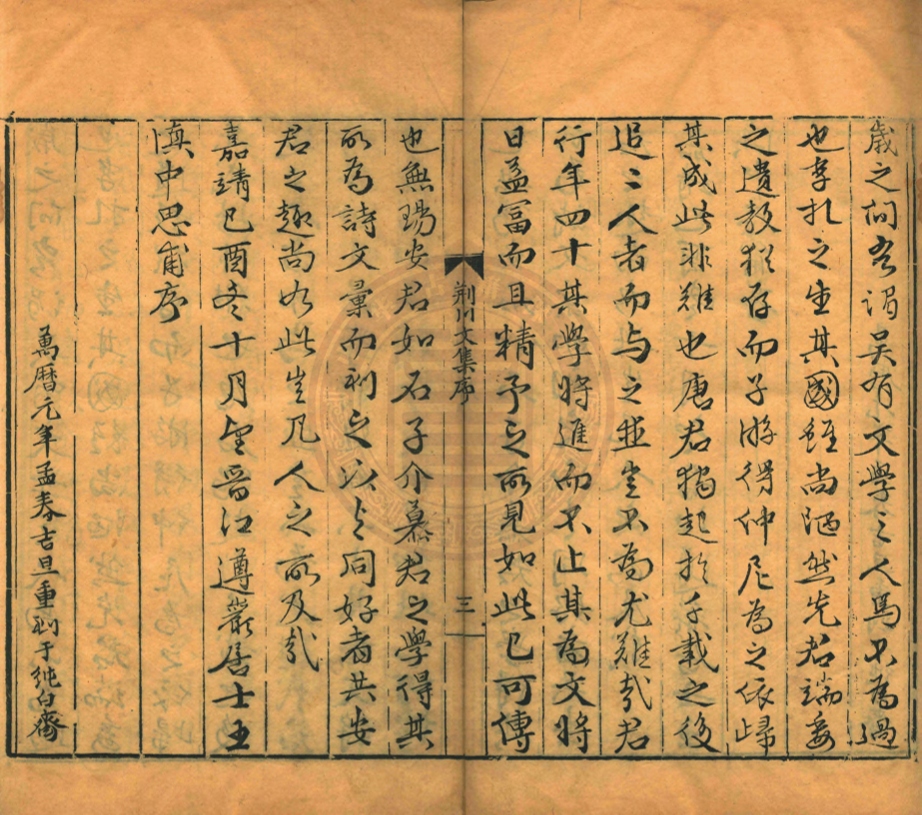 歲之間者謂吳有文學之人焉不為過
也季札之生其國雖尚陋然先君端委
之遺教猶存而子游得仲尼為之依歸
其成此非難也唐君獨起於千載之後
追二人者而与之並豈不為尤難哉君
行年四十其學將進而不止其為文將
日益富而且精予之所見如此已可傳
荆川文集序
三
也無錫安君如石子介慕君之學得其
所為詩文彙而刻之以与同好者共安
君之趣尚如此豈凡人之所及哉
嘉靖己酉冬十月望晉江遵巖居士王
慎中思甫序
萬曆元年孟春吉旦重刻于純白齋